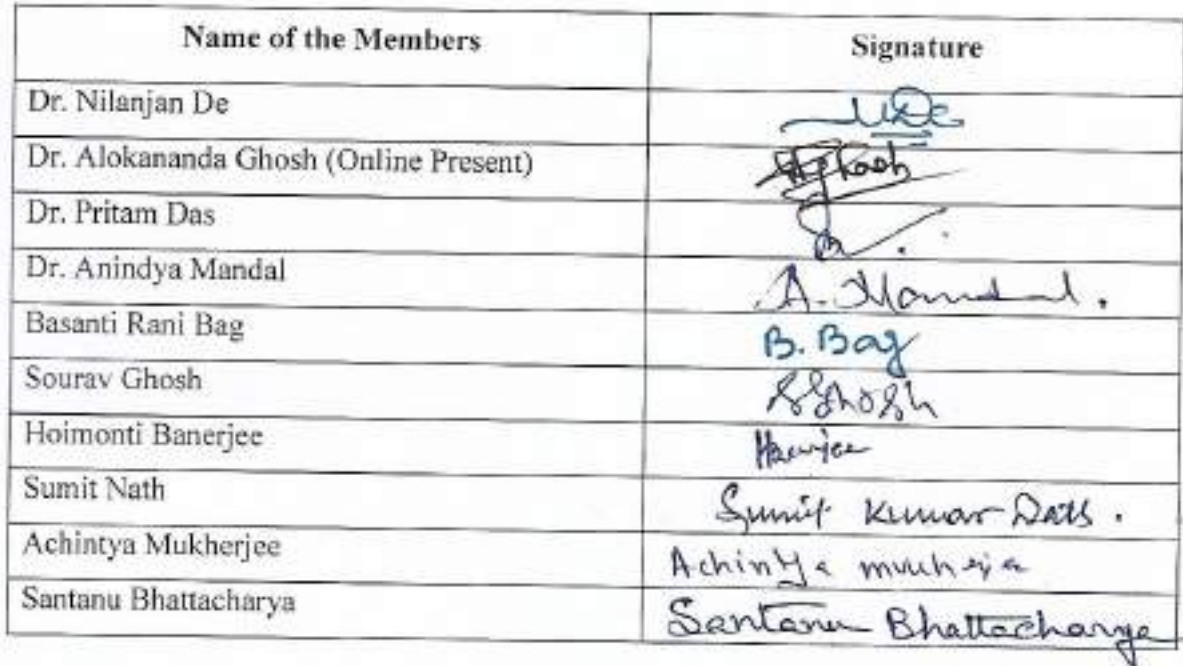 Name of the Members Signature
Dr. Nilanjan De NDe
Dr. Alokananda Ghosh (Online Present) AGhosh
Dr. Pritam Das
Dr. Anindya Mandal A. Mandal.
Basanti Rani Bag B. Bag
Sourav Ghosh SGhosh
Hoimonti Banerjee
Sumit Nath Sumit Kumar
Achintya Mukherjee Achintya
Santanu Bhattacharya Santanu Bhattacharya